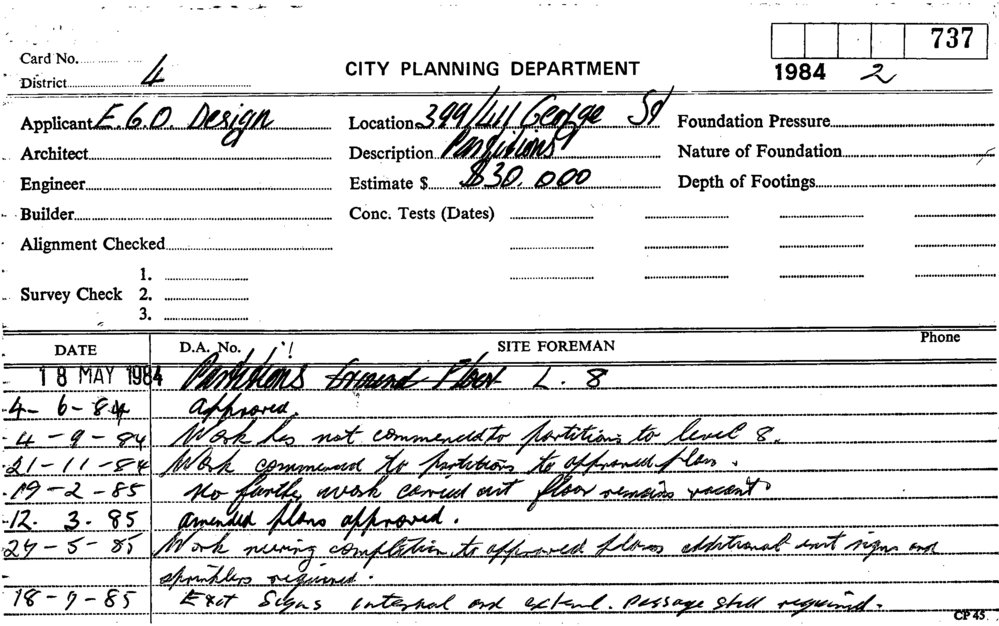 737
Card No.
1984 2
District 4
CITY PLANNING DEPARTMENT
Applicant E.G.O. Design
Location 399/411 George St
Foundation Pressure
Architect
Description Partitions
Nature of Foundation
Engineer
Estimate $ $30,000
Depth of Footings
Builder
Conc. Tests (Dates)
Alignment Checked
1.
Survey Check 2.
3.
DATE D.A. No. SITE FOREMAN Phone
18 MAY 1984 Partitions Ground Floor L. 8
4-6-84 approved.
4-9-84 Work has not commenced to partitions to level 8.
21-11-84 Work commenced to partitions to approved plan.
19-2-85 No further work carried out floor remains vacant
12.3.85 amended plans approved.
24-5-85 Work nearing completion to approved plans additional exit signs and
sprinklers required.
18-7-85 Exit Signs internal and extend. passage still required.
CP 45